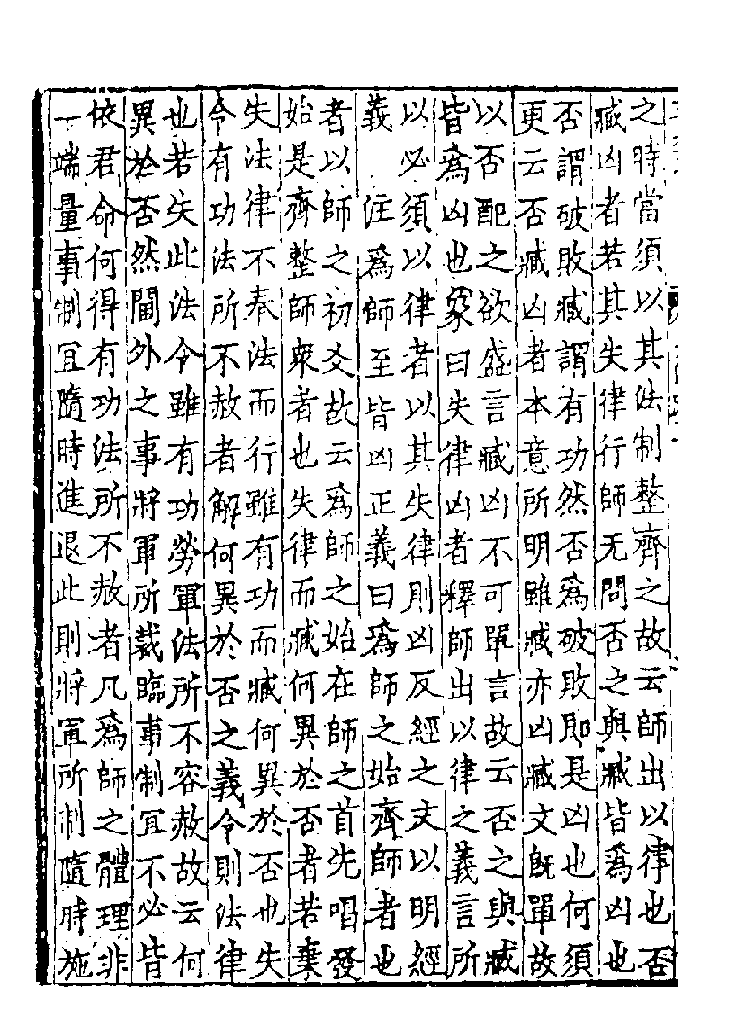 之時當須以其法制整齊之故云師出以律也否
臧凶者若其失律行師无問否之與臧皆為凶也
否謂破敗臧謂有功然否為破敗即是凶也何須
更云否臧凶者本意所明雖臧亦凶臧文既單故
以否配之欲盛言臧凶不可單言故云否之與臧
皆為凶也象曰失律凶者釋師出以律之義言所
以必須以律者以其失律則凶反經之文以明經
義　注為師至皆凶正義曰為師之始齊師者也
者以師之初爻故云為師之始在師之首先唱發
始是齊整師衆者也失律而臧何異於否者若棄
失法律不奉法而行雖有功而臧何異於否也失
令有功法所不赦者解何異於否之義令則法律
也若失此法令雖有功勞軍法所不容赦故云何
異於否然閫外之事將軍所裁臨事制宜不必皆
依君命何得有功法所不赦者凡為師之體理非
一端量事制宜隨時進退此則將軍所制隨時施